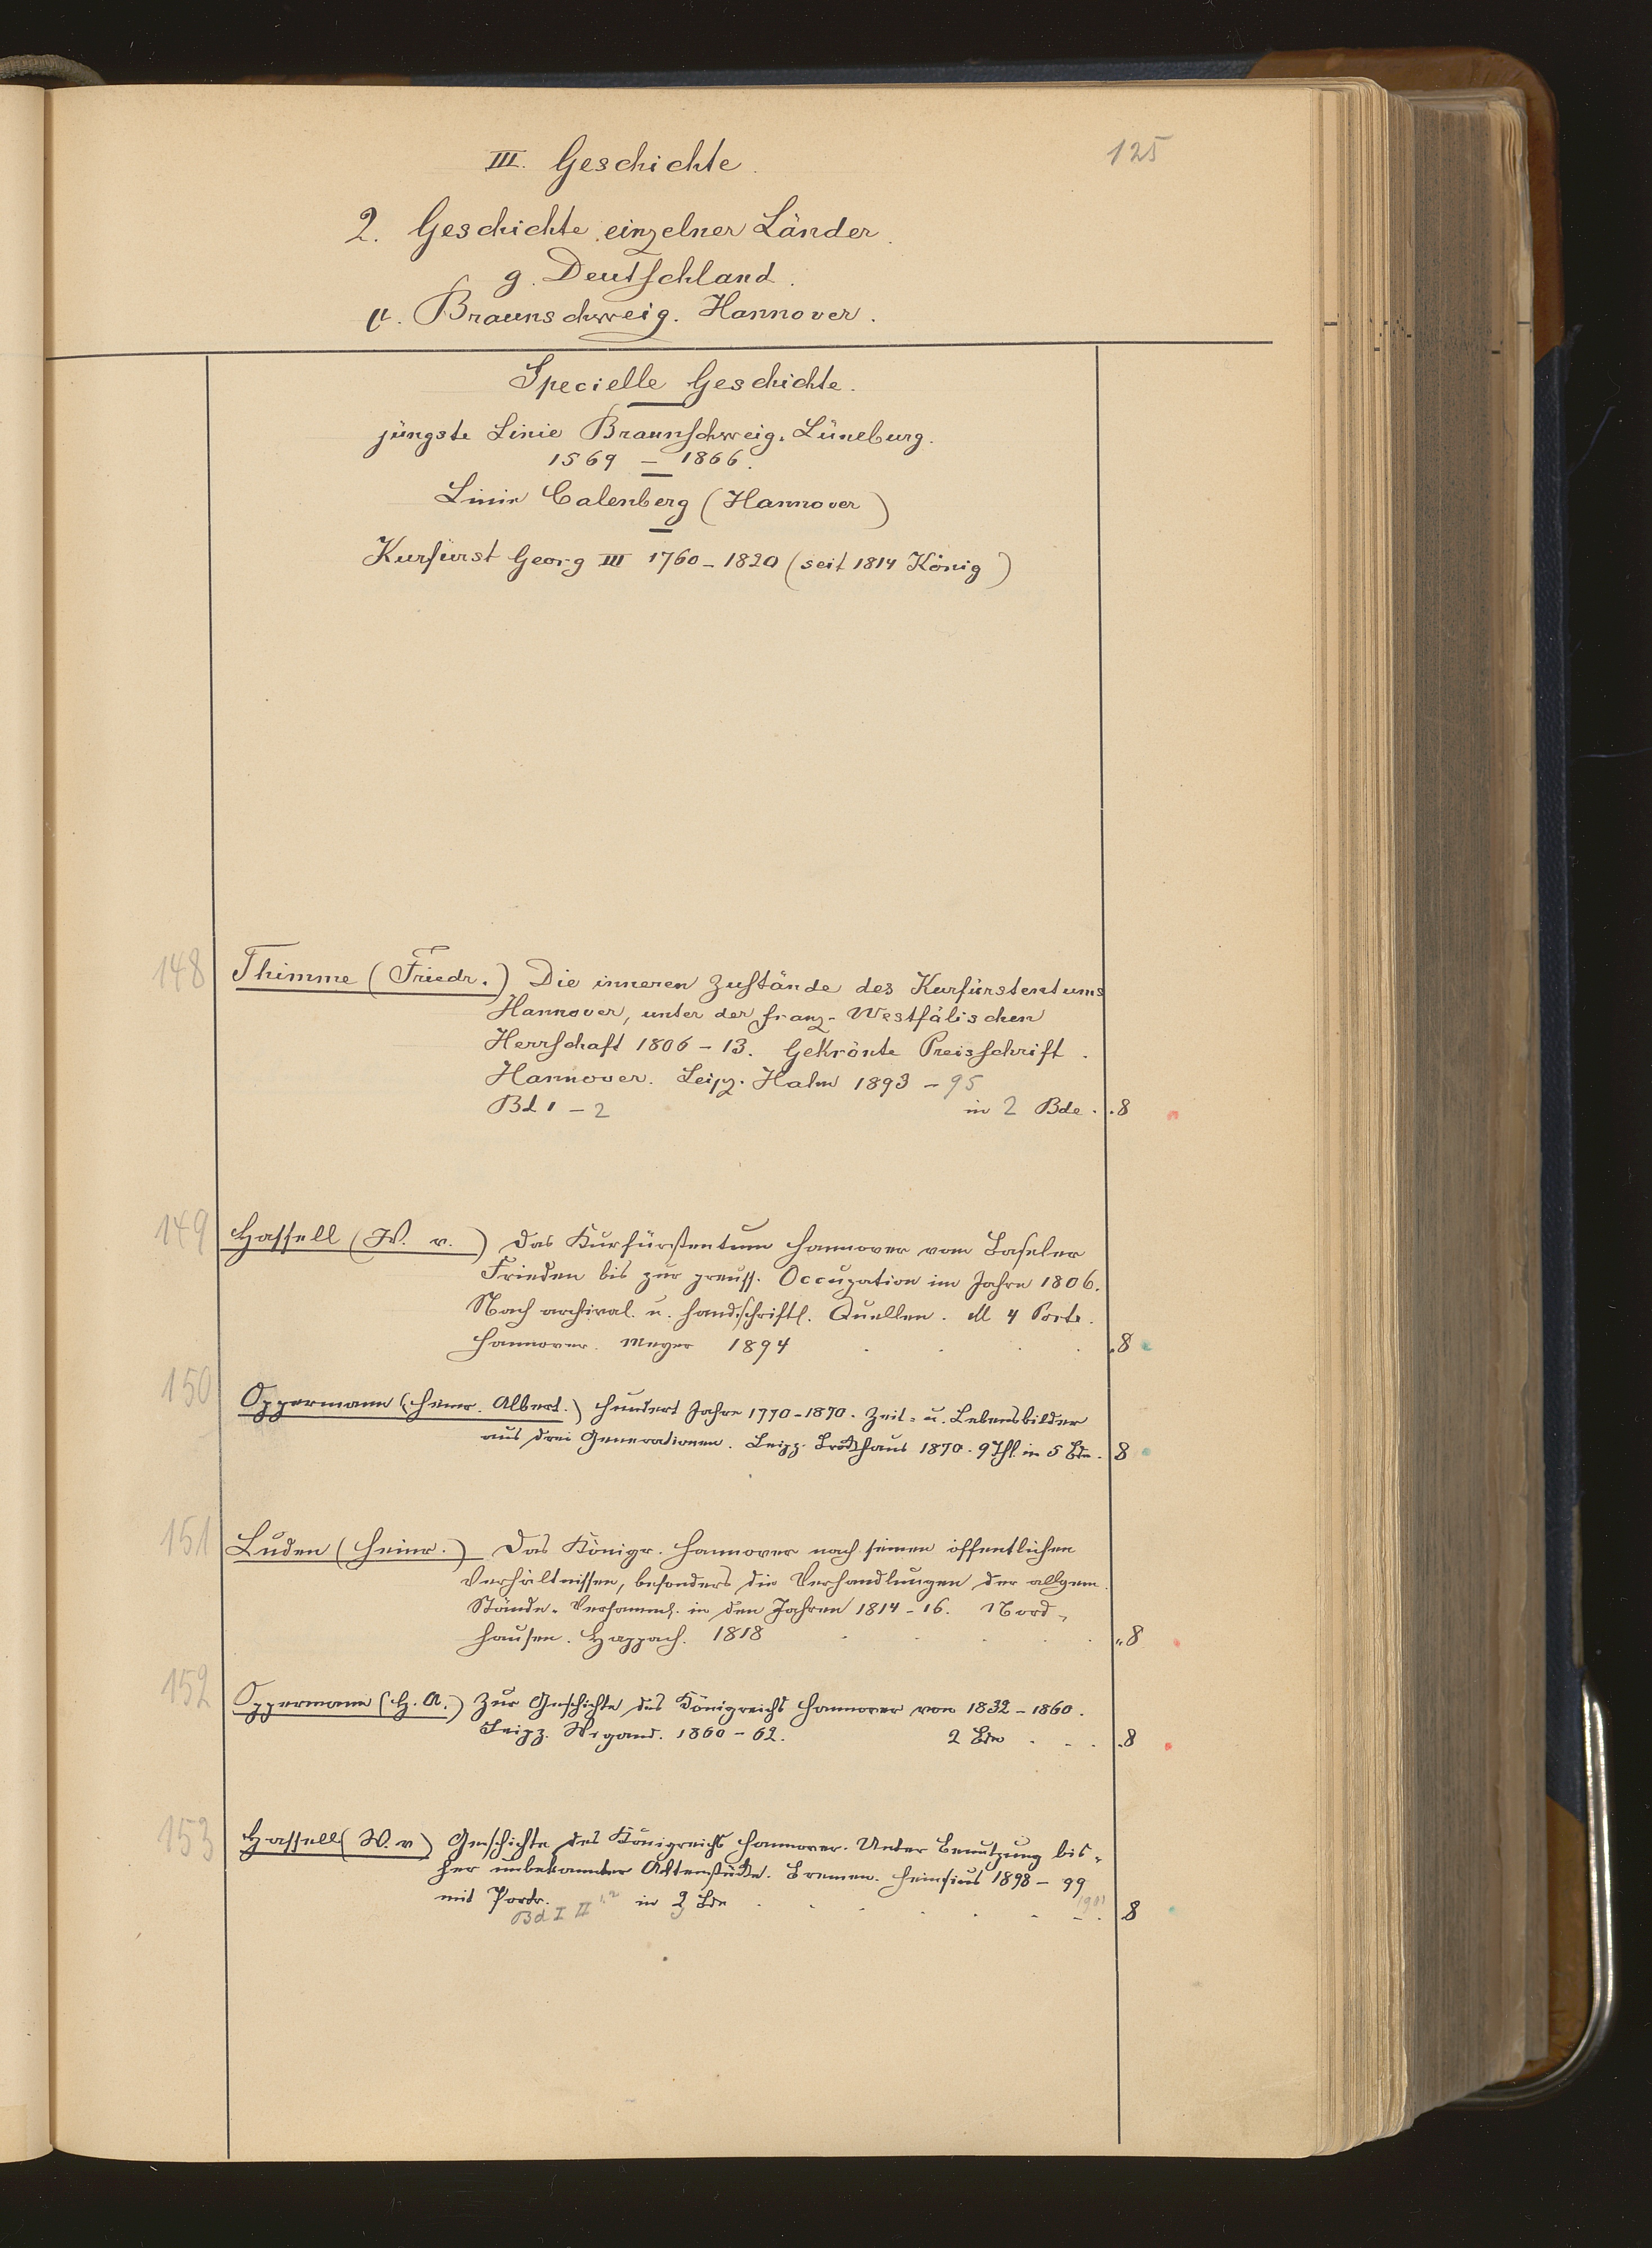 125
III. Geschichte.
2. Geschichte einzelner Länder.
g. Deutschland.
Braunschweig. Hannover.
Specielle Geschichte.
jüngste Linie Braunschweig-Lüneburg.
1569 – 1866.
Linie Calenberg (Hannover)
Kurfürst Georg III 1760–1820 (seit 1814 König)
148 Thimme (Friedr.) Die inneren Zustände des Kurfürstentums
Hannover, unter der franz-Westfälischen
Herrschaft 1806–13. Gekrönte Preisschrift.
Hannover. Leipz. Hahn 1893–95
Bd 1–2 in 2 Bde. . 8
149 Hassell (W. v.) Das Kurfürstentum Hannover vom Baseler
Frieden bis zur preuss. Occupation im Jahre 1806.
Nach archival. u. handschriftl. Quellen. M 4 Portr.
Hannover. Meyer 1894 . . . . . 8
150 Oppermann (Heinr. Albert.) Hundert Jahre 1770–1870. Zeit- u. Lebensbilder
aus drei Generationen. Leipz. Brockhaus 1870. 9 Thl. in 5 Bdn. 8
151 Luden (Heinr.) Das Königr. Hannover nach seinen öffentlichen
Verhältnissen, besonders die Verhandlungen der allgem.
Stände-Versamml. in den Jahren 1814–16. Nord-
hausen. Happach. 1818 . . . . . 8
152 Oppermann (H. A.) Zur Geschichte des Königreichs Hannover von 1832–1860.
Leipz. Wigand. 1860–62. 2 Bde . . . . 8
153 Hassell (W. v) Geschichte des Königreichs Hannover. Unter Benutzung bis-
her unbekannter Aktenstücke. Bremen. Heinsius 1898–99
1901
mit Portr. in Bde . . . . . . 8
Bd I II 1.2